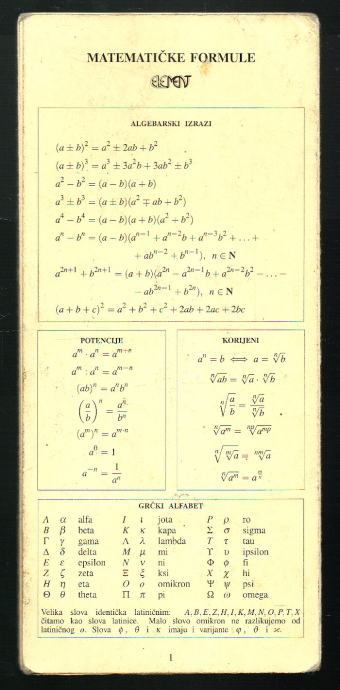 MATEMATIČKE FORMULE
ELEMENT
ALGEBARSKI IZRAZI
(a ± b)² = a² ± 2ab + b²
(a ± b)³ = a³ ± 3a²b + 3ab² ± b³
a² − b² = (a − b)(a + b)
a³ ± b³ = (a ± b)(a² ∓ ab + b²)
a⁴ − b⁴ = (a − b)(a + b)(a² + b²)
aⁿ − bⁿ = (a − b)(aⁿ⁻¹ + aⁿ⁻²b + aⁿ⁻³b² + . . . +
+ abⁿ⁻² + bⁿ⁻¹), n ∈ N
a²ⁿ⁺¹ + b²ⁿ⁺¹ = (a + b)(a²ⁿ − a²ⁿ⁻¹b + a²ⁿ⁻²b² − . . . −
− ab²ⁿ⁻¹ + b²ⁿ), n ∈ N
(a + b + c)² = a² + b² + c² + 2ab + 2ac + 2bc
POTENCIJE
aᵐ · aⁿ = aᵐ⁺ⁿ
aᵐ : aⁿ = aᵐ⁻ⁿ
(ab)ⁿ = aⁿbⁿ
(a/b)ⁿ = aⁿ/bⁿ
(aᵐ)ⁿ = aᵐ·ⁿ
a⁰ = 1
a⁻ⁿ = 1/aⁿ
KORIJENI
aⁿ = b ⟺ a = ⁿ√b
ⁿ√ab = ⁿ√a · ⁿ√b
ⁿ√(a/b) = ⁿ√a / ⁿ√b
ⁿ√aᵐ = ⁿᵖ√aᵐᵖ
ⁿ√(ᵐ√a) = ⁿᵐ√a
ⁿ√aᵐ = a^(m/n)
GRČKI ALFABET
Α α alfa Ι ι jota Ρ ρ ro
Β β beta Κ κ kapa Σ σ sigma
Γ γ gama Λ λ lambda Τ τ tau
Δ δ delta Μ μ mi Υ υ ipsilon
Ε ε epsilon Ν ν ni Φ ϕ fi
Ζ ζ zeta Ξ ξ ksi Χ χ hi
Η η eta Ο ο omikron Ψ ψ psi
Θ θ theta Π π pi Ω ω omega
Velika slova identička latiničnim: A, B, E, Z, H, I, K, M, N, O, P, T, X
čitamo kao slova latinice. Malo slovo omikron ne razlikujemo od
latiničnog o. Slova ϕ, θ i κ imaju i varijante φ, ϑ i ϰ.
1